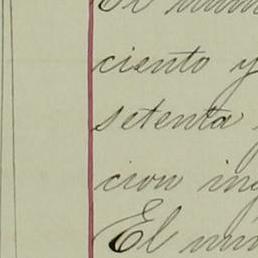 El núm
ciento y
setenta
cion in
El núm